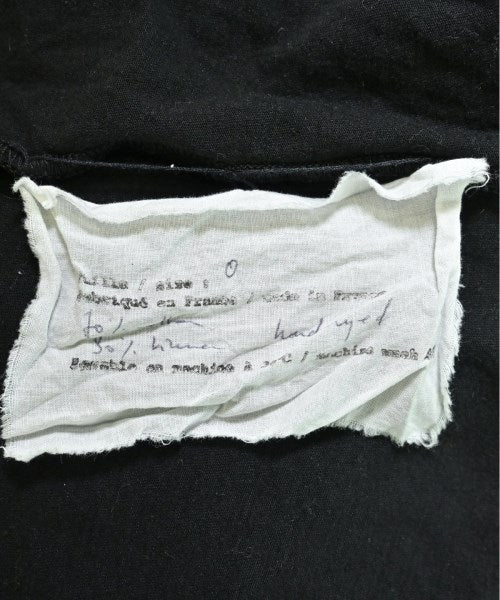 size : 0
Fabriqué en France / Made in France
70%
30% hand dyed
Lavable en machine à / machine wash